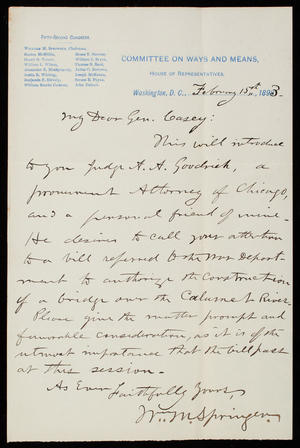 FIFTY-SECOND CONGRESS.
WILLIAM M. SPRINGER, Chairman.
Benton McMillin,
Henry G. Turner,
William L. Wilson,
Alexander B. Montgomery,
Justin R. Whiting,
Benjamin F. Shively,
William Bourke Cockran,
Moses T. Stevens,
William J. Bryan,
Thomas B. Reed,
Julius C. Burrows,
Joseph McKenna,
Sereno E. Payne,
John Dalzell.
COMMITTEE ON WAYS AND MEANS,
HOUSE OF REPRESENTATIVES.
Washington, D. C., February 15th, 1893.
My Dear Gen. Casey:
This will introduce
to you Judge A. A. Goodrich, a
prominent Attorney of Chicago,
and a personal friend of mine.
He desires to call your attention
to a bill referred to the War Depart-
ment to authorize the Construction
of a bridge over the Calumet River.
Please give the matter prompt and
favorable consideration, as it is of the
utmost importance that the bill pass
at this session.
As Ever
Faithfully Yours,
Wm. M. Springer.